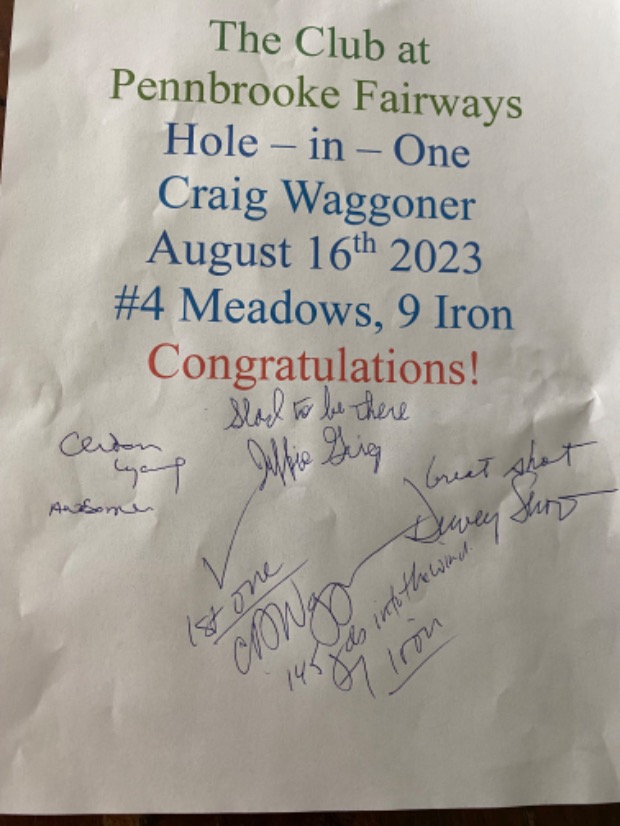 The Club at
Pennbrooke Fairways
Hole – in – One
Craig Waggoner
August 16th 2023
#4 Meadows, 9 Iron
Congratulations!
Glad to be there
Awesome
Great shot
Dewey
1st one
145 yds into the wind
Iron